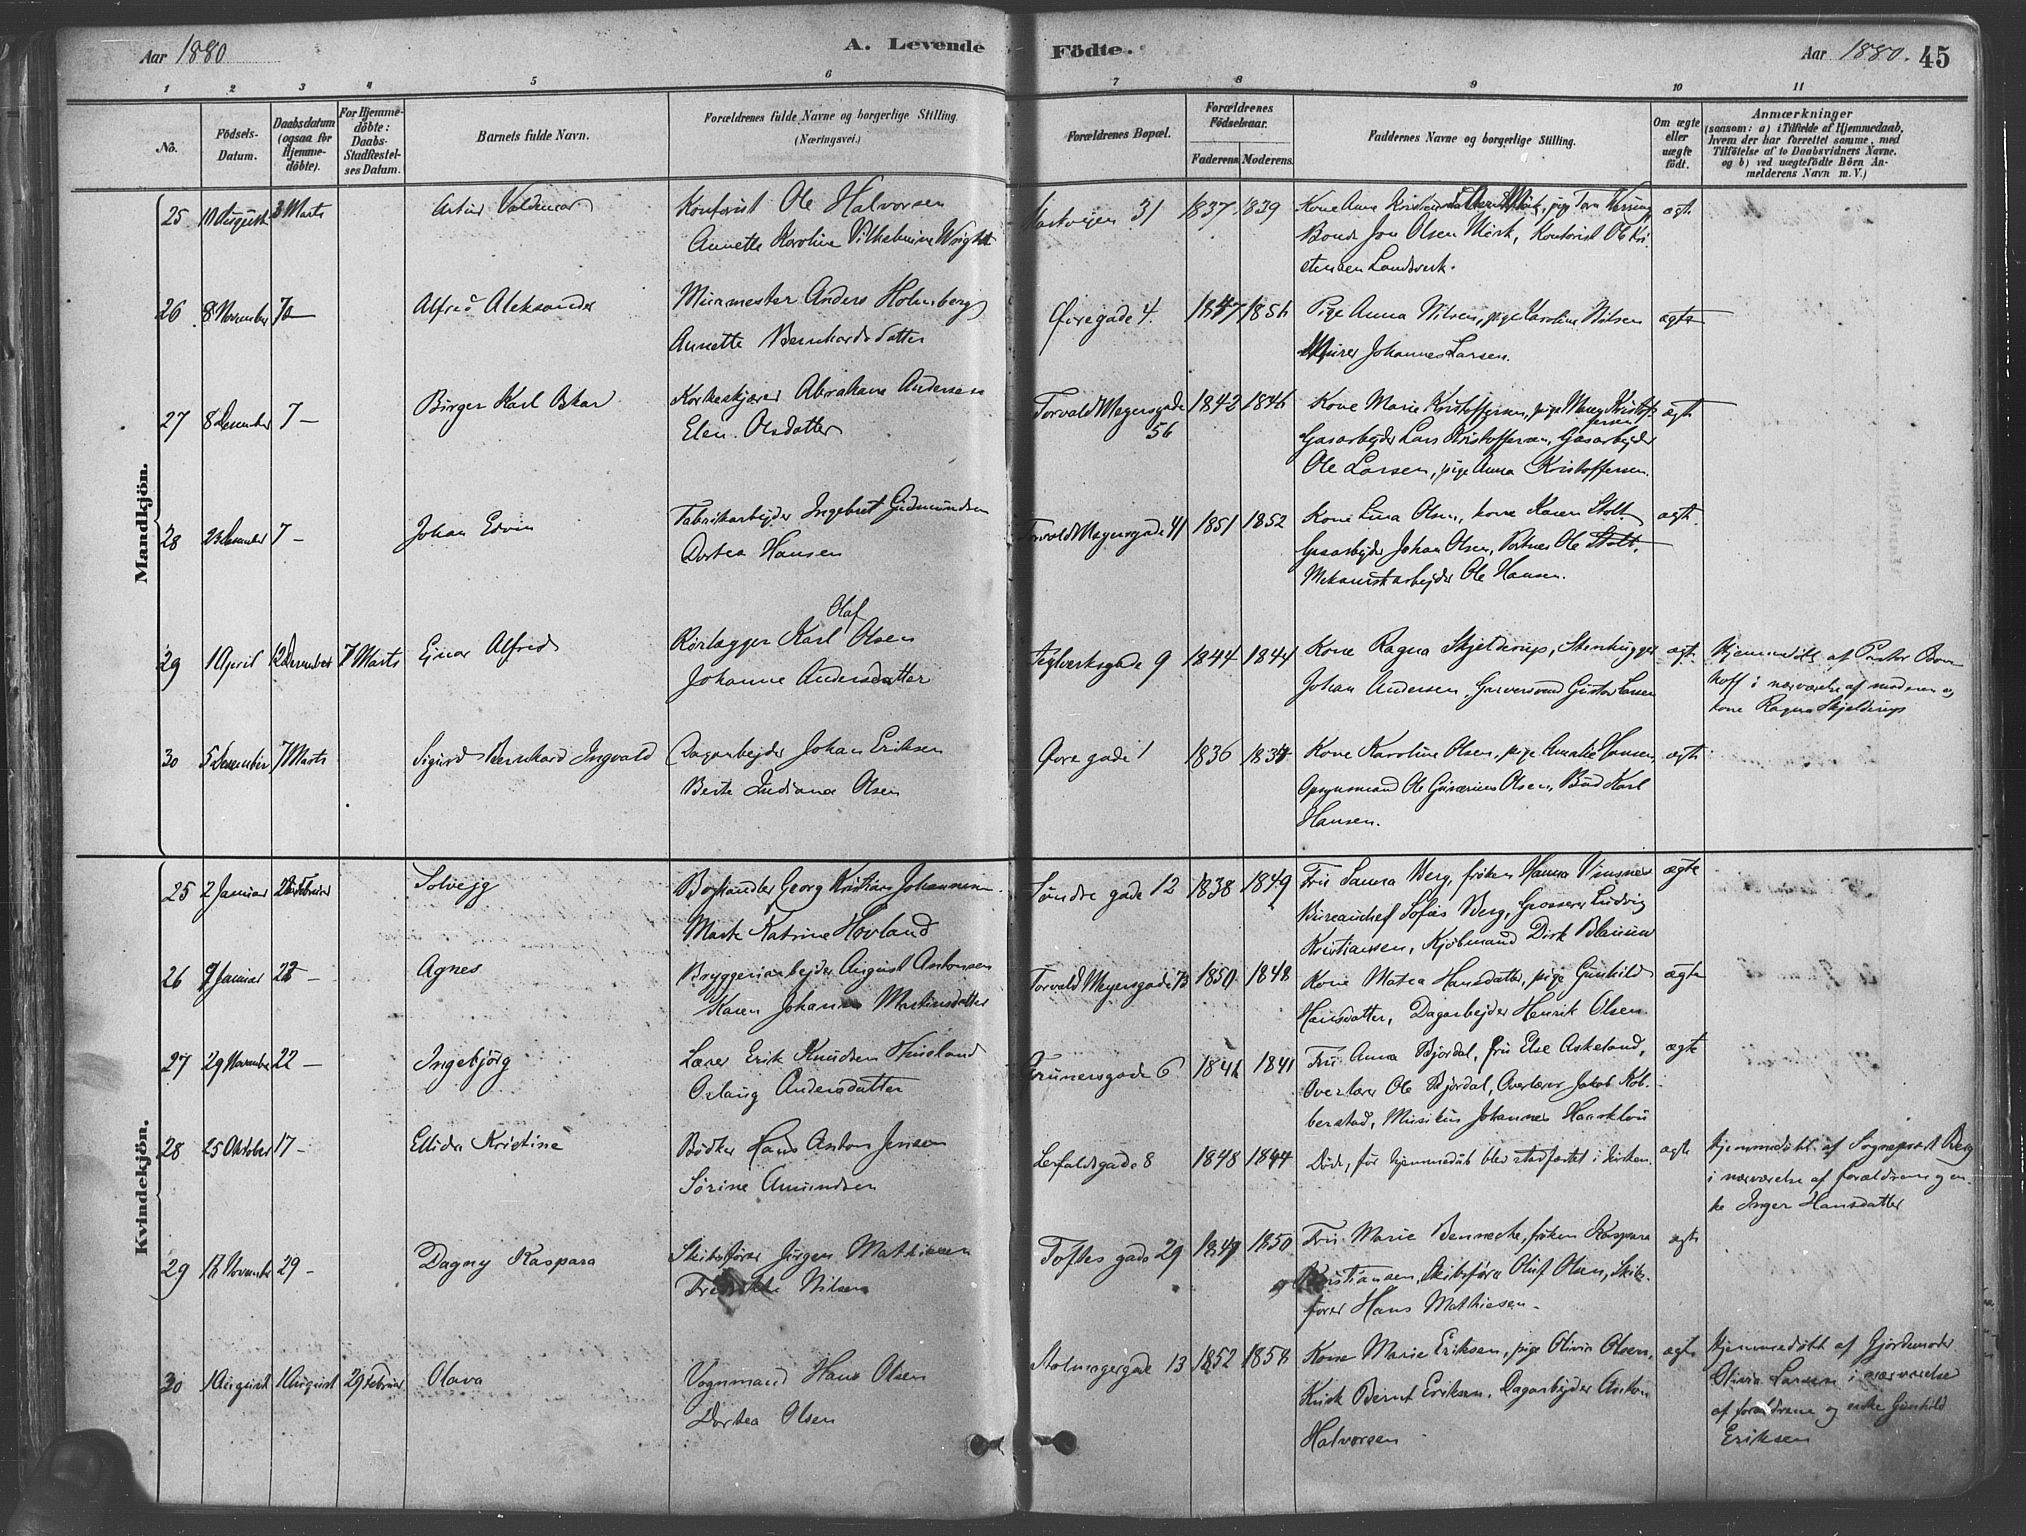 Aar 1880
A. Levende
Födte.
Aar 1880.
45
1 2 3 4 5 6 7 8 9 10 11
No.
Födsels-
Datum.
Daabsdatum
(ogsaa for
Hjemme-
döbte).
For Hjemme-
döbte:
Daabs-
Stadfestel-
ses Datum.
Barnets fulde Navn.
Forældrenes fulde Navne og borgerlige Stilling.
(Næringsvei.)
Forældrenes Bopæl.
Forældrenes
Födselsaar.
Faderens Moderens.
Faddernes Navne og borgerlige Stilling.
Om ægte
eller
uægte
födt.
Anmærkninger
(saasom: a) i Tilfælde af Hjemmedaab,
hvem der har forrettet samme, med
Tilföielse af to Daabsvidners Navne,
og b) ved uægtefödte Börn An-
melderens Navn m. V.)
Mandkjön.
25 10 August 3 Marts
Valdemar
Kontorist Ole Halvorsen
Annette Karoline Vilhelmine Wright
31 1837 1839
Kone Anne
Bonde Jon Olsen Mørk, Kontorist Ole Kri
stensen Landsverk.
ægte
26 8 November 7
Alfred Aleksander
Murmester Anders Holmberg
Annette Bernhardsdatter
Øvregade 4. 1847 1856
Pige Anna Nilsen, pige Karoline Nilsen
Murer Johannes Larsen.
ægte
27 8 December 7 —
Birger Karl Oskar
Korkeskjærer Abraham Andersen
Elen Olsdatter
Torvald Meyersgade
56
1843 1846
Kone Marie Kristoffersen, pige Kristof
fersen
Gasarbejder Lars Kristoffersen, Gasarbejder
Ole Larsen, pige Anna Kristoffersen.
ægte
28 23 December 7 —
Johan Edvin
Fabrikarbejder Ingebret Gudmundsen
Dortea Hansen
Torvald Meyersgade 41 1851 1852
Kone Lina Olsen, kone Karen Stolt
Gasarbejder Johan Olsen, Portner Ole Stolt,
Mekaniskarbejder Ole Hansen.
ægte.
29 1 April 12 December 7 Marts
Ejnar Alfred
Olaf
Rørlægger Karl Olsen
Johanne Andersdatter
Teglverksgade 9 1844 1844
Kone Ragna Skjelderup, Stenhugger
Johan Andersen, Garversvend Gustav Larsen
ægte
Hjemmedøbt af Pastor
hoff i nærværelse af moderen og
kone Ragna Skjelderup
30 5 December 7 Marts
Sigurd Bernhard Ingvald
Dagarbejder Johan Eriksen
Berte Indiana Olsen
Øvregade 1 1836 1834
Kone Karoline Olsen, pige Amalie Hansen,
Opsynsmand Ole Olsen, Bud Karl
Hansen.
ægte
Kvindekjön.
25 2 Januar Februar
Solvejg
Boghandler Georg Kristian Johannesen
Marte Katrine Hovland
Søndre gade 12 1838 1849
Fru Sanna Berg, frøken Hanna Vinsnes
Bureauchef Sofus Berg, Grosserer Ludvig
Kristiansen, Kjøbmand Dirk
ægte
26 9 Januar 22 —
Agnes
Bryggeriarbejder August Antonsen
Karen Johanne Martinsdatter
Torvald Meyersgade 73 1850 1848
Kone Matea Hansdatter, pige Gunhild
Hansdatter, Dagarbejder Henrik Olsen
ægte
27 29 November 22 —
Ingebjørg
Lærer Erik Knudsen
Aslaug Andersdatter
Grünersgade 6 1846 1841
Fru Anna Bjordal, fru Else Askeland,
Overlærer Ole Bjordal, Overlærer Jakob Kob-
berstad, Musikus Johannes Haarklou
ægte
28 25 Oktober 17 —
Ellida Kristine
Bødker Hans Anton Jensen
Sørine Amundsen
Lerfaldsgade 8 1848 1844
Døde, før hjemmedåb blev stadfæstet i kirken.
ægte
Hjemmedøbt af Sogneprest Berg
i nærværelse af forældrene og en-
ke Inger Hansdatter
29 17 November 29 —
Dagny Kaspara
Skibsfører Jørgen Mathisen
Fredrikke Nilsen
Toftes gade 29 1849 1850
Fru Marie Bennecke, frøken Kaspara
Kristiansen, Skibsfører Oluf Olsen, Skibs-
fører Hans Mathiesen.
ægte
30 1 August 1 August 29 Februar
Olava
Vognmand Hans Olsen
Dortea Olsen
Stolmagergade 13 1852 1858
Kone Marie Eriksen, pige Olivia Olsen,
Kusk Bernt Eriksen, Dagarbejder Anton
Halvorsen
ægte
Hjemmedøbt af Gjordemoder
Olivia Larsen i nærværelse
af forældrene og enke Gunhild
Eriksen